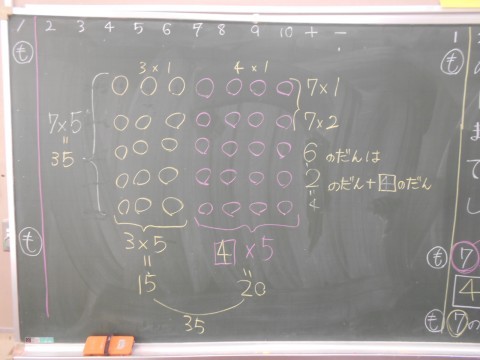 1 2 3 4 5 6 7 8 9 10 + -
も
3×1 4×1
7×5
=
35
7×1
7×2
6のだんは
2のだん+4のだん
=
4
も
3×5
=
15
4×5
=
20
35
1
も
も 7
4
も 7の